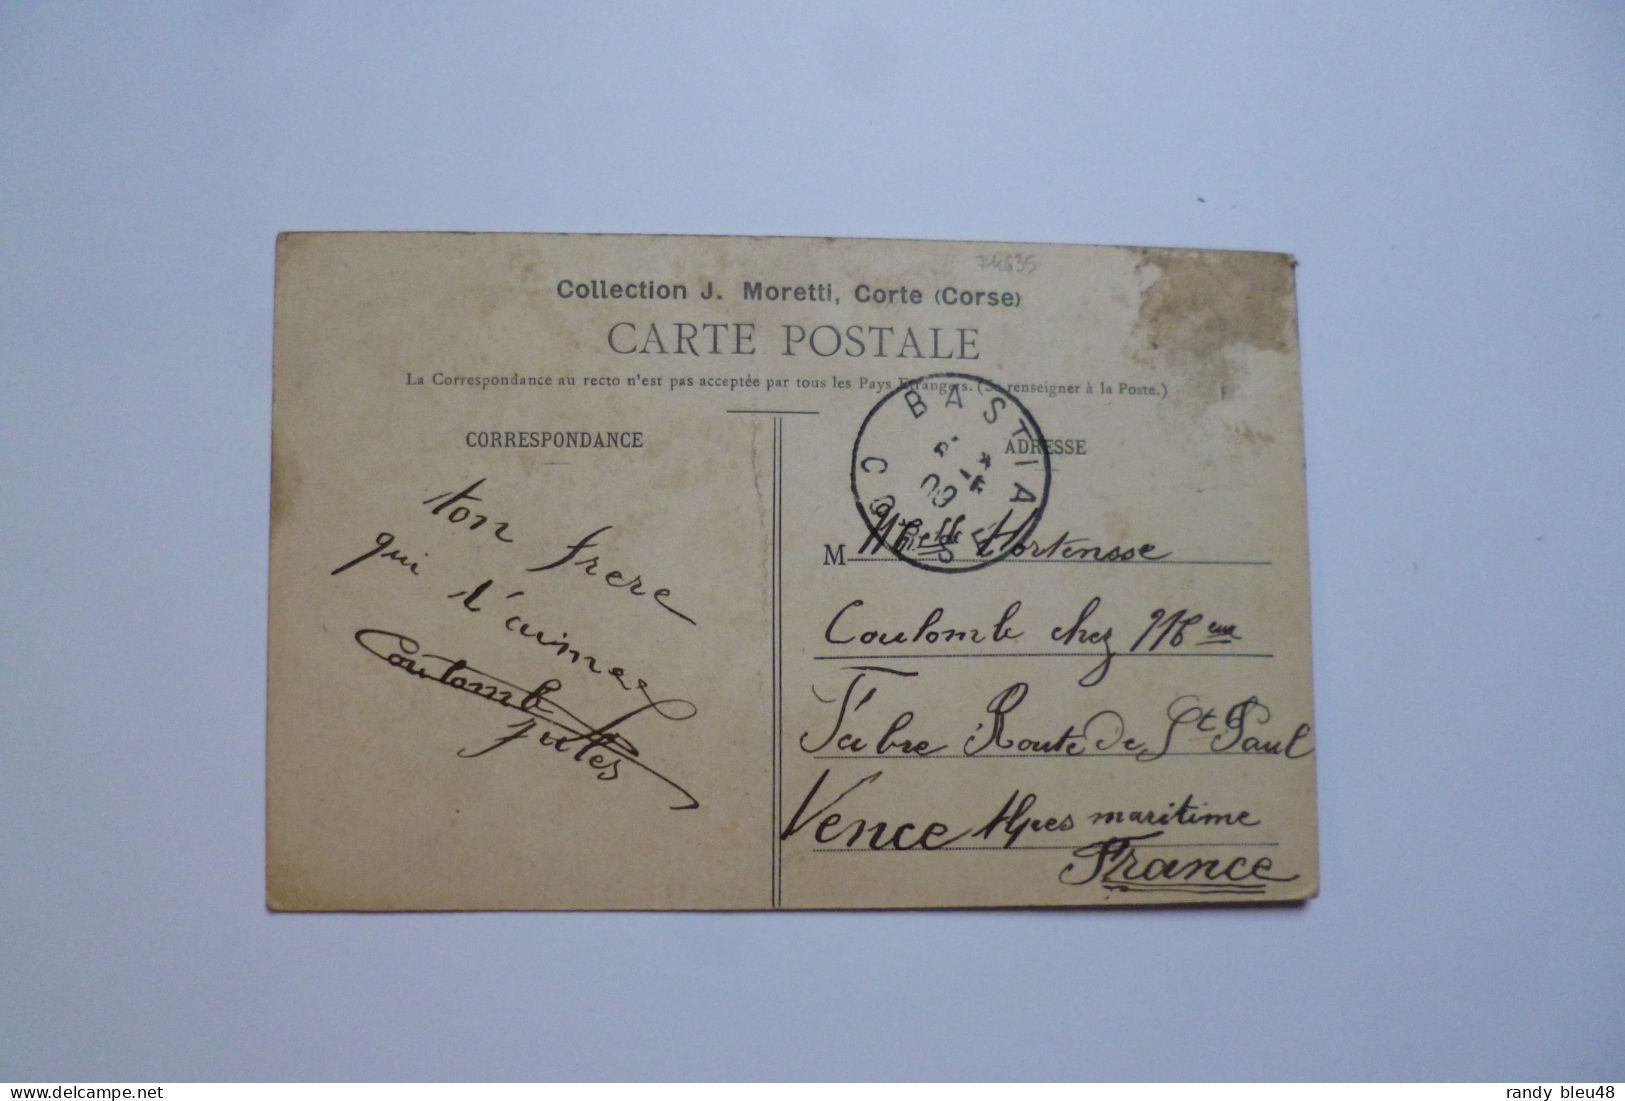 74635
Collection J. Moretti, Corte (Corse)
CARTE POSTALE
La Correspondance au recto n'est pas acceptée par tous les Pays Etrangers. (Se renseigner à la Poste.)
CORRESPONDANCE
ton frere
qui t'aime
Coulomb
Jules
BASTIA
09
CORSE
ADRESSE
M Melle Hortensse
Coulomb chez Me
Fabre Route de St Paul
Vence Alpes maritime
France
delcampe.net
randy_bleu48